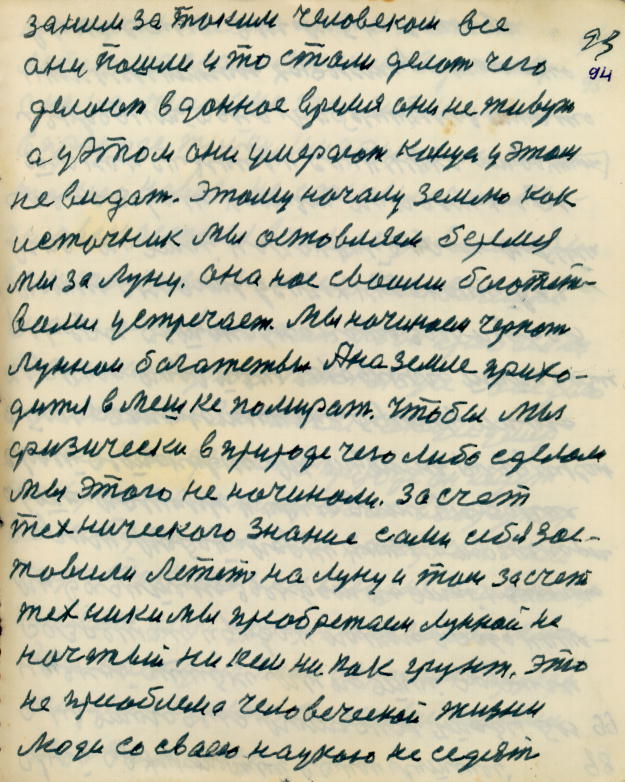 заним за таким человеком все
93
они пошли и то стали делат чего
94
делают в данное время они не живут
а у этом они умерают конца у этом
не видат. Этому началу землю как
источник мы оставляем беремся
мы за луну. она нас своими богатст-
вами устречает. Мы начинаем черпат
лунном богатства А на земле прихо-
дится в мешке помират. Чтобы мы
физически в природе чего либо сделали
мы этого не начинали. За счет
технического знание сами себя зас-
тавили летет на луну и там за счет
техники мы приобретаем лунной не
начатый ни кем ни как грунт. Это
не приоблема человеческой жизни
люди со своею наукою не седят